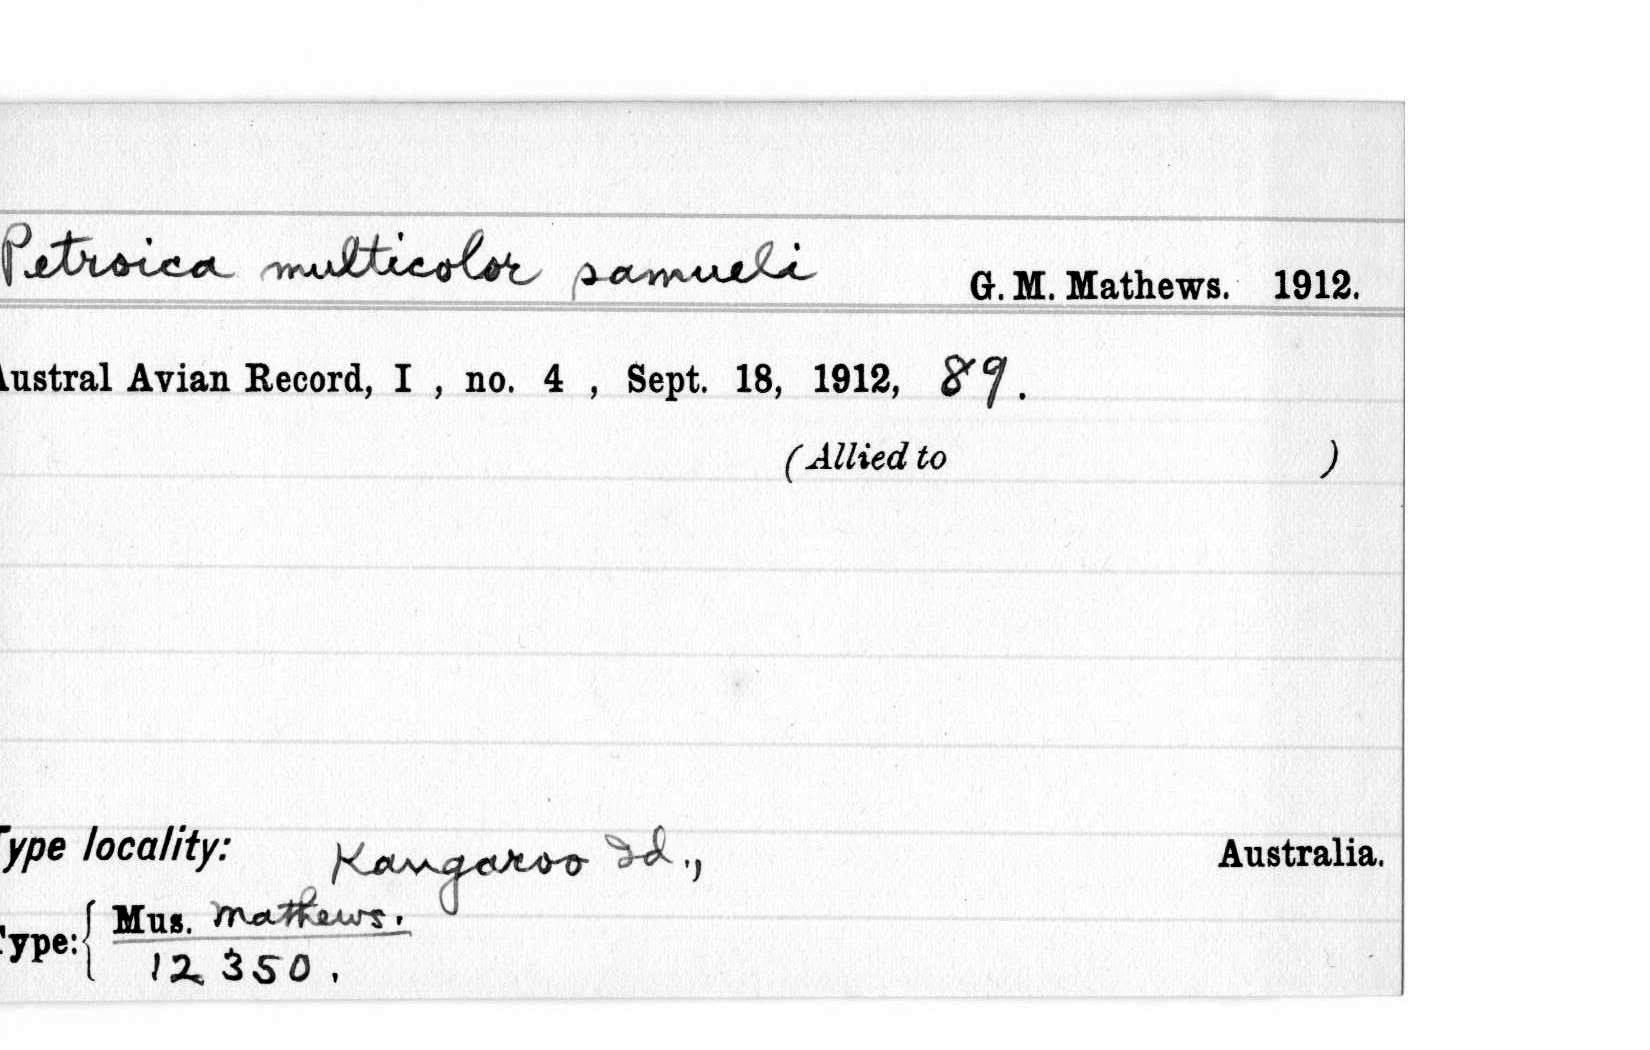 Petroica multicolor samueli G. M. Mathews. 1912.
Austral Avian Record, I , no. 4 , Sept. 18, 1912, 89.
(Allied to )
Type locality: Kangaroo Id., Australia.
Type: { Mus. Mathews.
12350.